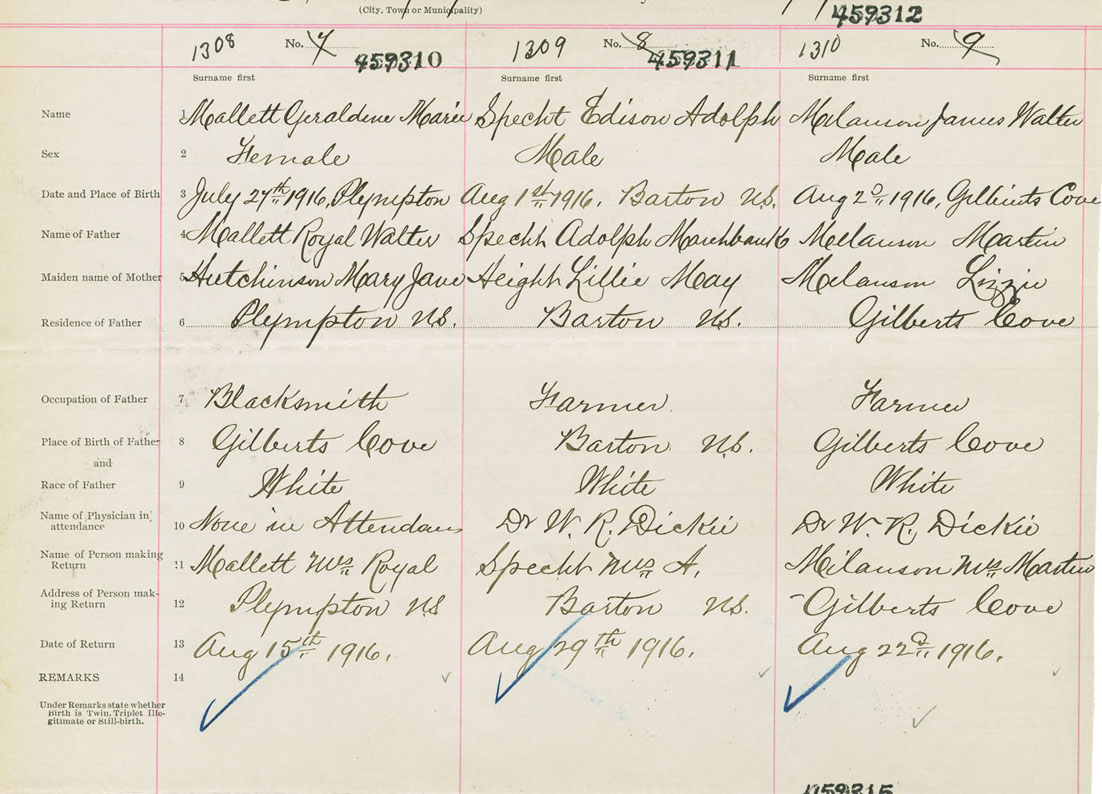 (City, Town or Municipality)
459312
1308 No. 7 459310 1309 No. 8 459311 1310 No. 9
Surname first Surname first Surname first
Name 1 Mallett Geraldine Marie Specht Edison Adolph Melanson James Walter
Sex 2 Female Male Male
Date and Place of Birth 3 July 27th 1916, Plympton Aug 1st 1916. Barton N.S. Aug 2D 1916, Gilberts Cove
Name of Father 4 Mallett Royal Walter Specht Adolph Marchbanks Mellanson Martin
Maiden name of Mother 5 Hutchinson Mary Jane Height Lillie May Melanson Lizzie
Residence of Father 6 Plympton N.S. Barton N.S. Gilberts Cove
Occupation of Father 7 Blacksmith Farmer. Farmer
Place of Birth of Father 8 Gilberts Cove Barton N.S. Gilberts Cove
and
Race of Father 9 White White White
Name of Physician in
attendance 10 None in Attendans Dr W. R. Dickie Dr W. R. Dickie
Name of Person making
Return 11 Mallett Mrs Royal Specht Mrs A. Milanson Mrs Martin
Address of Person mak-
ing Return 12 Plympton NS Barton N.S. Gilberts Cove
Date of Return 13 Aug 15th 1916. Aug 29th 1916. Aug 22D 1916.
REMARKS 14
Under Remarks state whether
Birth is Twin, Triplet Ille-
gitimate or Still-birth.